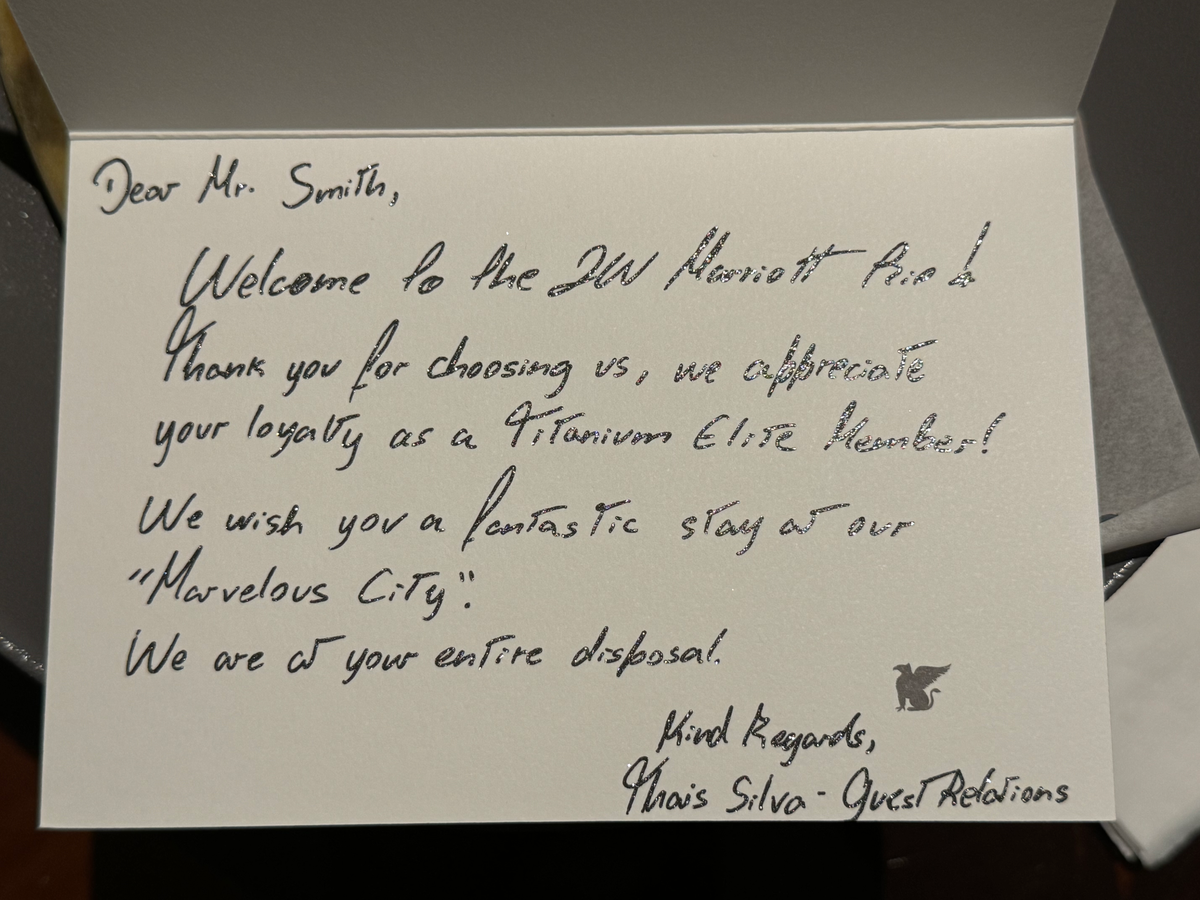 Dear Mr. Smith,
Welcome to the JW Marriott Rio!
Thank you for choosing us, we appreciate
your loyalty as a Titanium Elite Member!
We wish you a fantastic stay at our
"Marvelous City".
We are at your entire disposal.
Kind Regards,
Thais Silva - Guest Relations